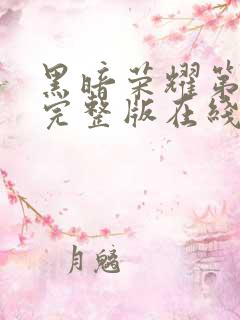 黑暗荣耀第
完整版在线
月魑